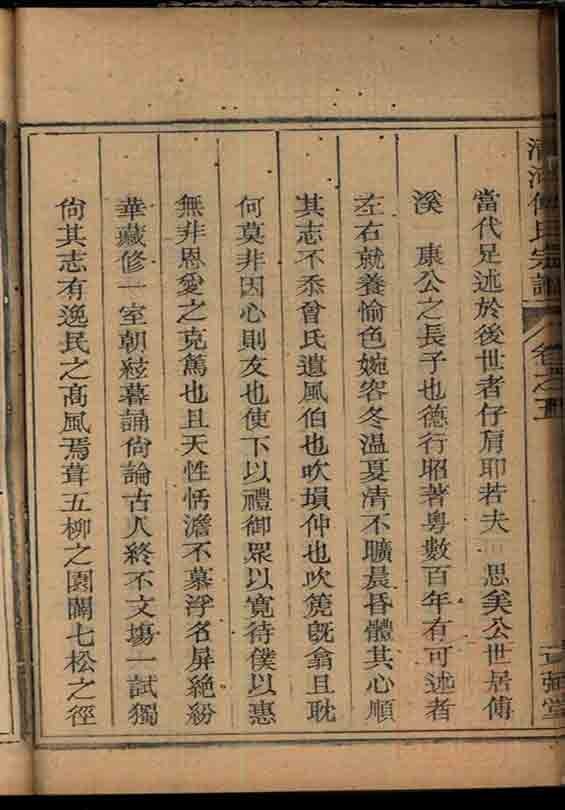 當代足述於後世者仔肩耶若夫 思矣公世居傅
溪 康公之長子也德行昭著粵數百年有可述者
左右就養愉色婉容冬溫夏凊不曠晨昏體其心順
其志不忝曾氏遺風伯也吹埙仲也吹箎旣翕且耽
何莫非因心則友也使下以禮御眾以寛待僕以惠
無非恩愛之克篤也且天性恬澹不慕浮名屏絶紛
華藏修一室朝絃暮誦尙論古人終不文塲一試獨
尙其志有逸民之高風焉葺五柳之園闢七松之徑
氏宗譜
卷之五
堂